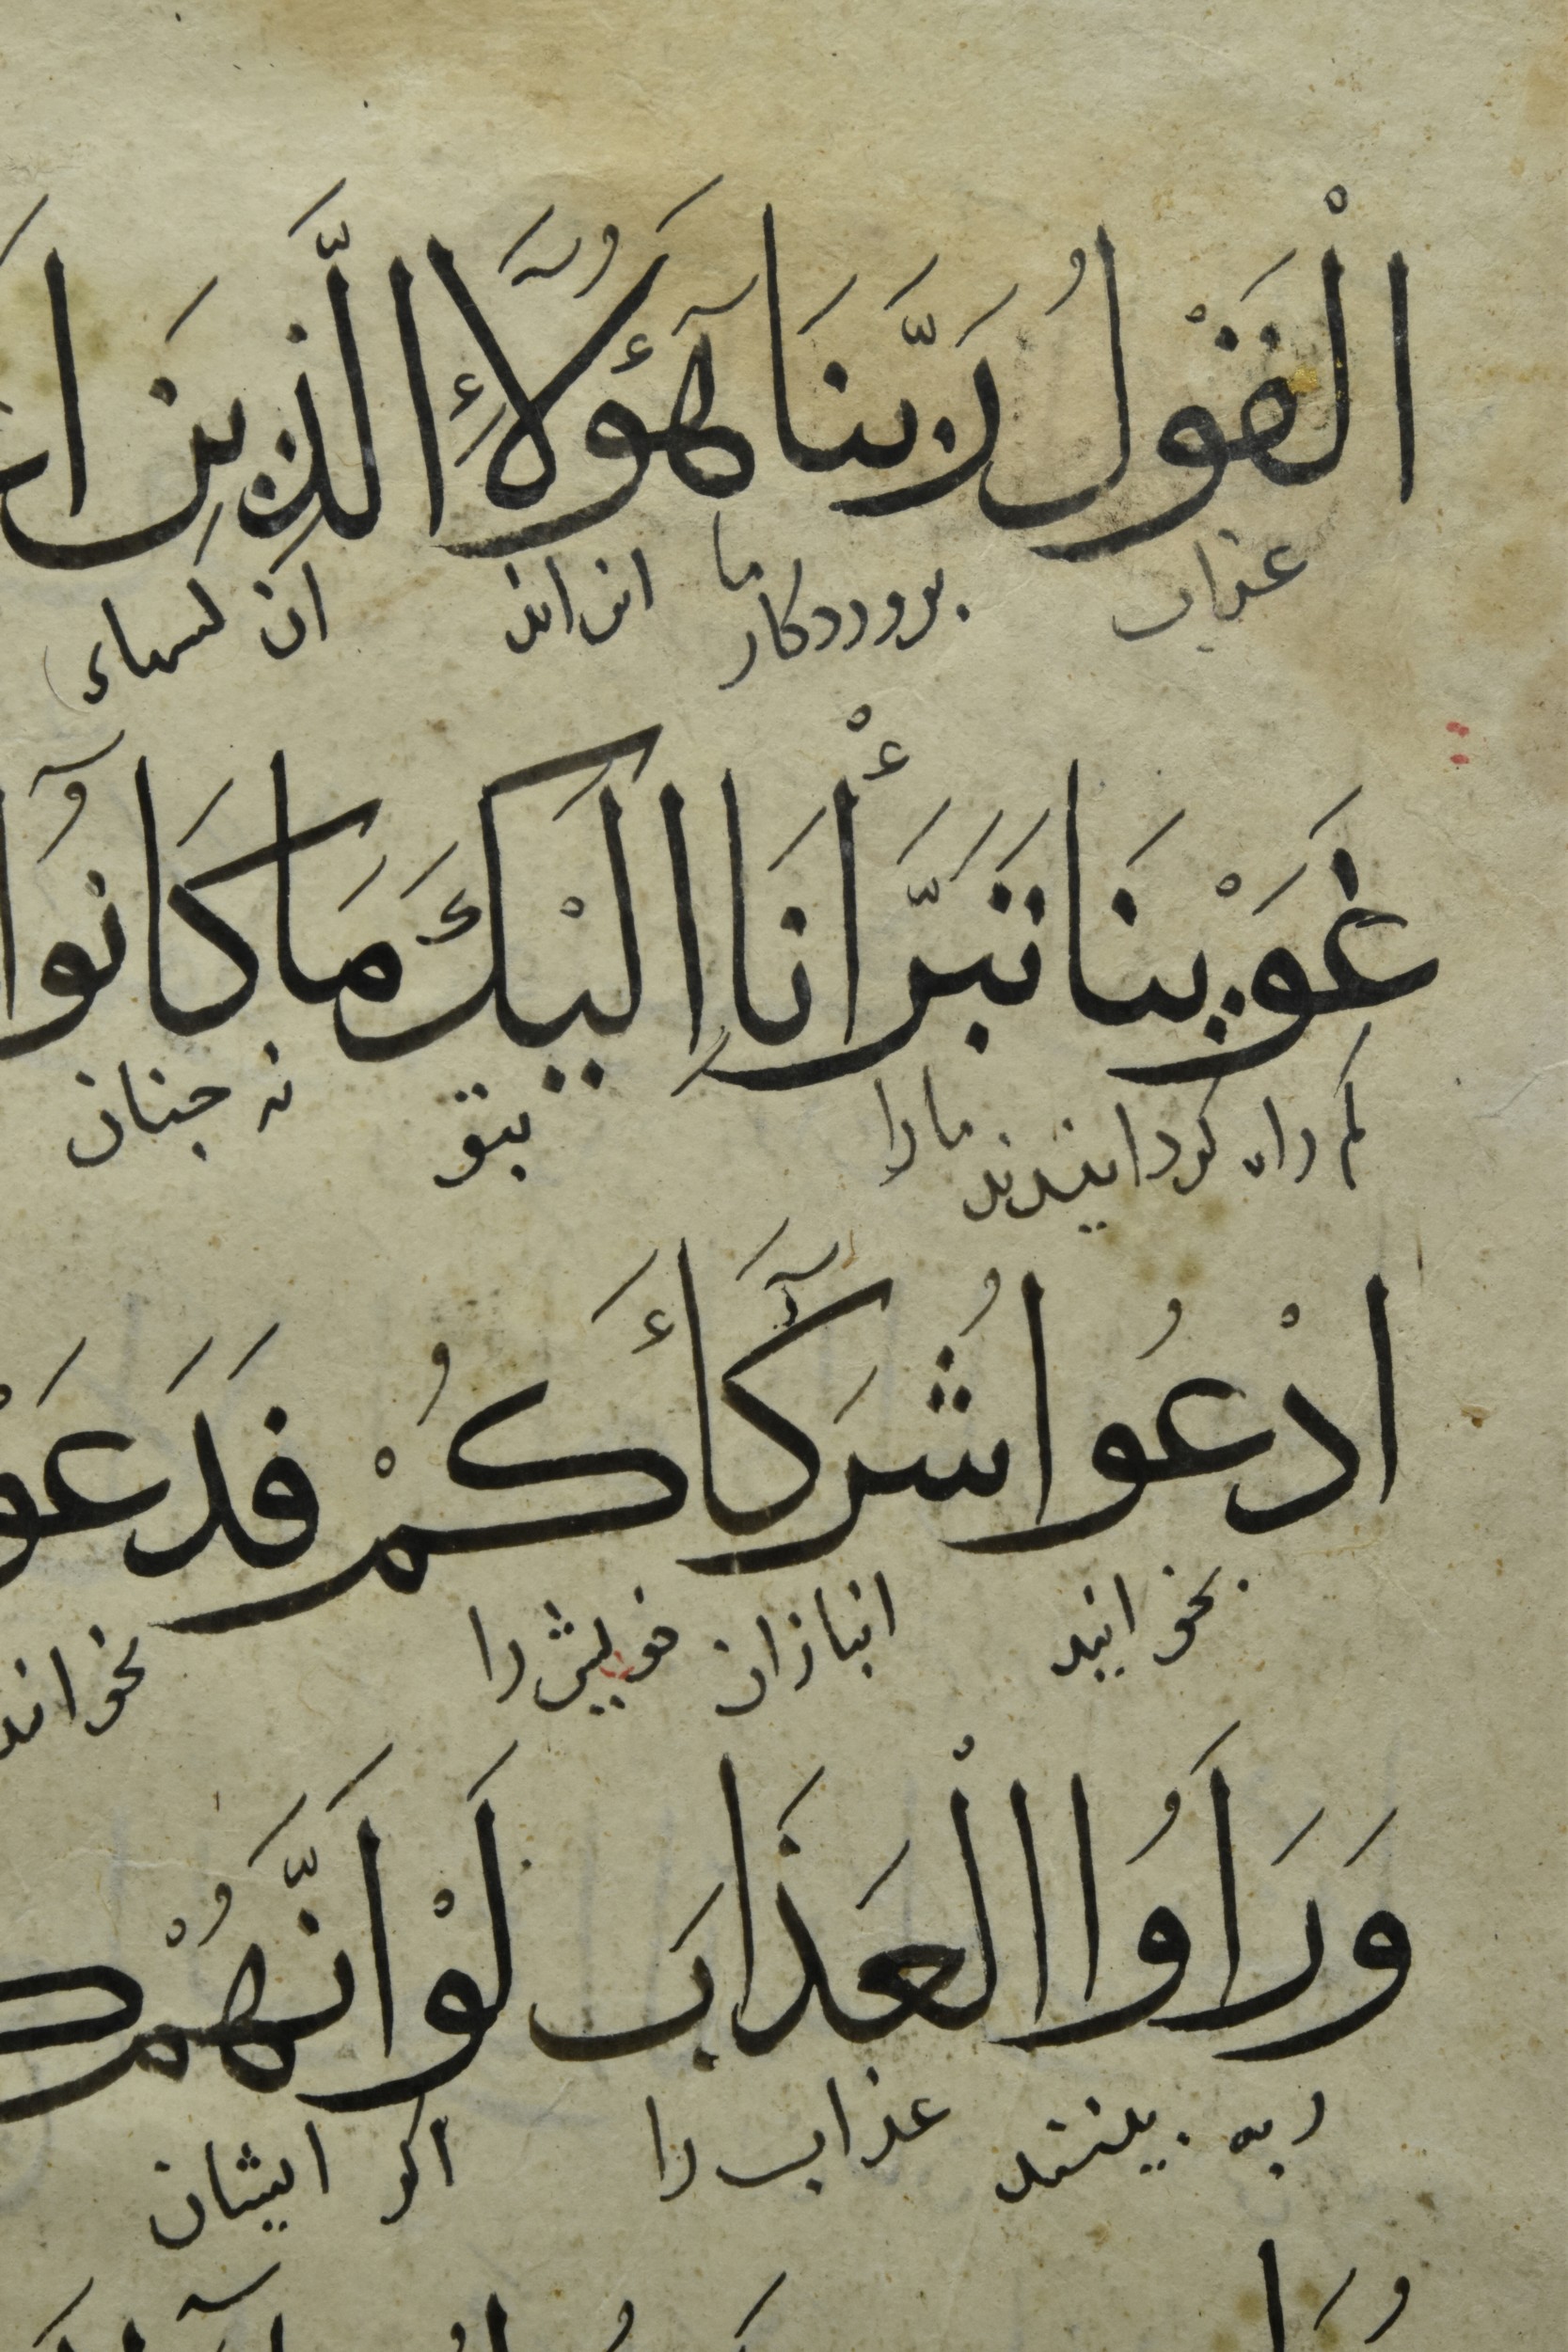 الْقَوْلُ رَبَّنَا هَٓؤُلَٓاءِ الَّذِينَ
عذاب بروردكار ما اين اند ان كسهاء
غَوَيْنَا تَبَرَّأْنَا اِلَيْكَ مَا كَانُوٓا
كم راه كردانيدند ما را بتو نه جنان
ادْعُوا شُرَكَٓاءَكُمْ فَدَعَوْ
بخوانيد انبازان خويش را بخواند
وَرَاَوُا الْعَذَابَ لَوْ اَنَّهُمْ
و به بينند عذاب را اكر ايشان